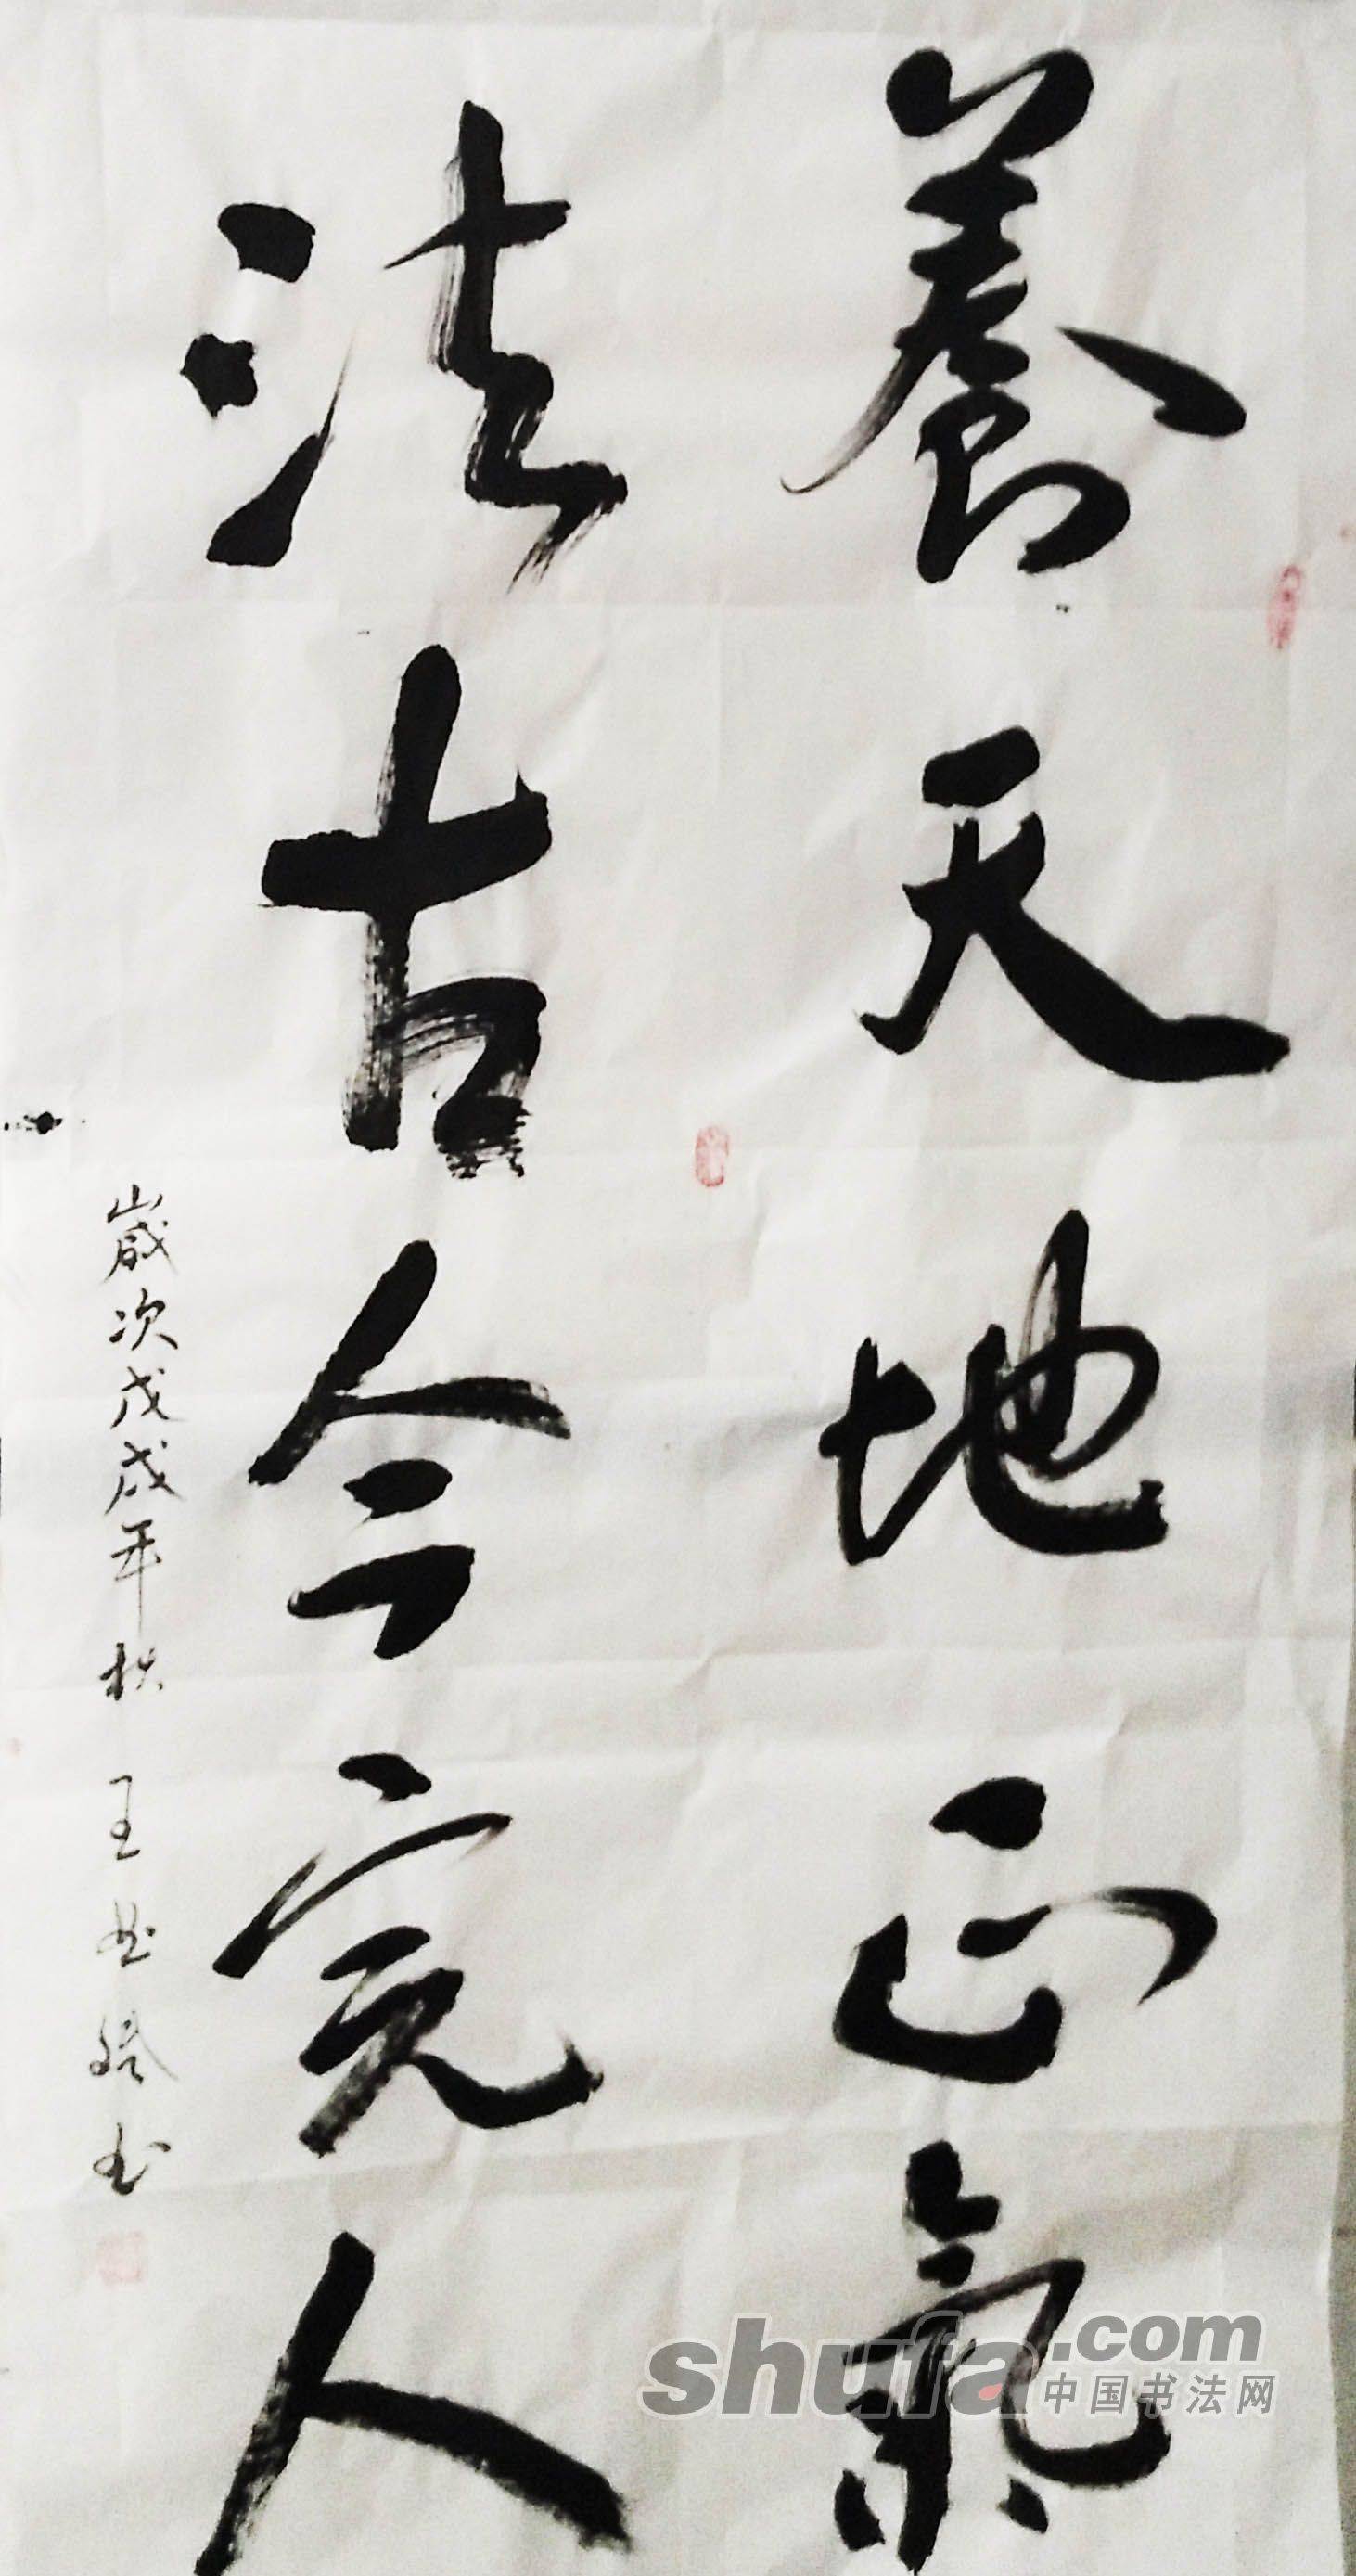 養天地正氣
法古今完人
歲次戊戌年秋 王 書
shufa.com
中国书法网